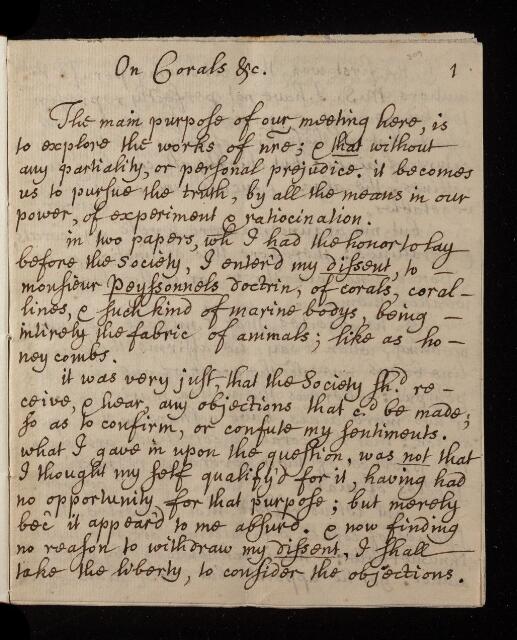 On Corals &c.
1
The main purpose of our meeting here, is
to explore the works of nr̅e; & that without
any partiality, or personal prejudice. it becomes
us to pursue the truth, by all the means in our
power, of experiment & ratiocination.
in two papers, wh̅ I had the honor to lay
before the Society, I enter'd my dissent, to –
monsieur Peyssonnels doctrin, of corals, coral-
lines, & such kind of marine bodys, being –
intirely the fabric of animals; like as ho–
ney combs.
it was very just, that the Society sh.d re–
ceive, & hear, any objections that c.d be made;
so as to confirm, or confute my sentiments.
what I gave in upon the question, was not that
I thought my self qualify'd for it, having had
no opportunity for that purpose; but merely
bec̅ it appeard to me absurd. & now finding
no reason to withdraw my dissent, I shall
take the liberty, to consider the objections.